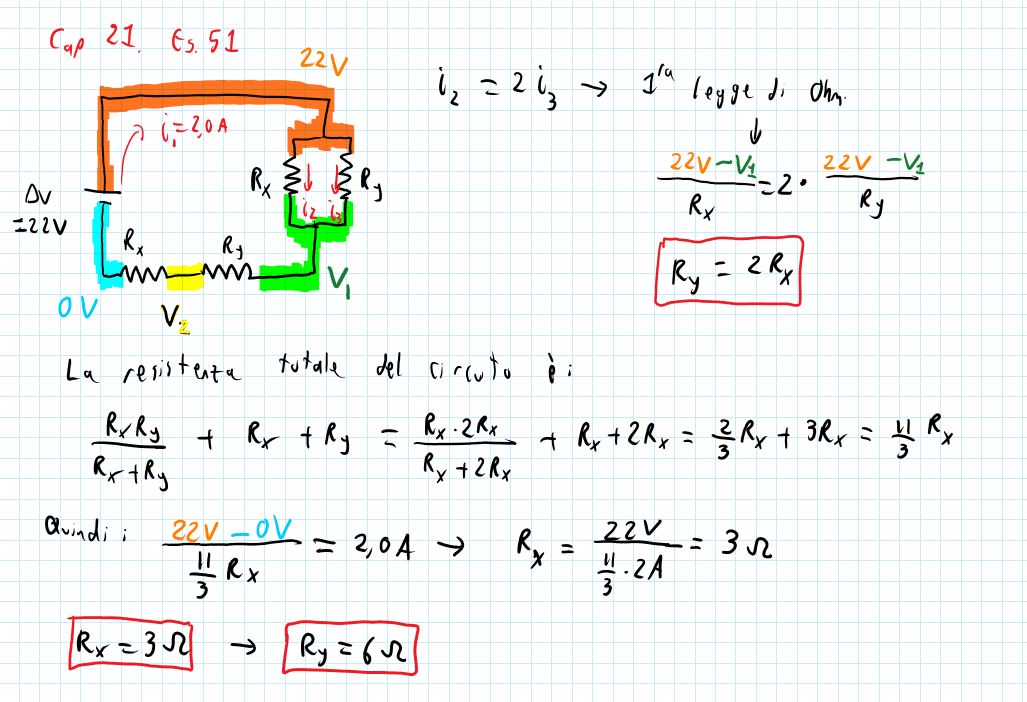 Cap 21. Es. 51
22V
i₁=2,0A
ΔV
=22V
Rx
Ry
i₂
i₃
Rx
Ry
0V
V₂
V₁
i₂ = 2 i₃ → 1ʳᵃ legge di Ohm.
↓
(22V-V₁)/Rx = 2· (22V-V₁)/Ry
Ry = 2Rx
La resistenza totale del circuto è:
RxRy/(Rx+Ry) + Rx + Ry = Rx·2Rx/(Rx+2Rx) + Rx+2Rx = 2/3 Rx + 3Rx = 11/3 Rx
Quindi: (22V-0V)/(11/3 Rx) = 2,0A → Rx = 22V/(11/3·2A) = 3Ω
Rx = 3Ω → Ry = 6Ω